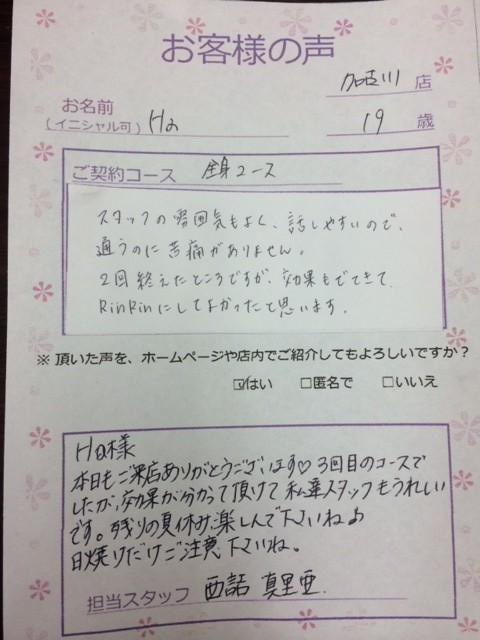 お客様の声
加古川 店
お名前
(イニシャル可) Ha 19 歳
ご契約コース 全身コース
スタッフの雰囲気もよく、話しやすいので、
通うのに苦痛がありません。
2回終えたところですが、効果もでてきて
RinRinにしてよかったと思います。
※ 頂いた声を、ホームページや店内でご紹介してもよろしいですか?
☑はい □匿名で □いいえ
Ha様
本日もご来店ありがとうございます♡3回目のコースで
したが、効果が分かって頂けて私達スタッフもうれしい
です。残りの夏休み楽しんで下さいね♪
日焼けだけご注意下さいね。
担当スタッフ 真里亜